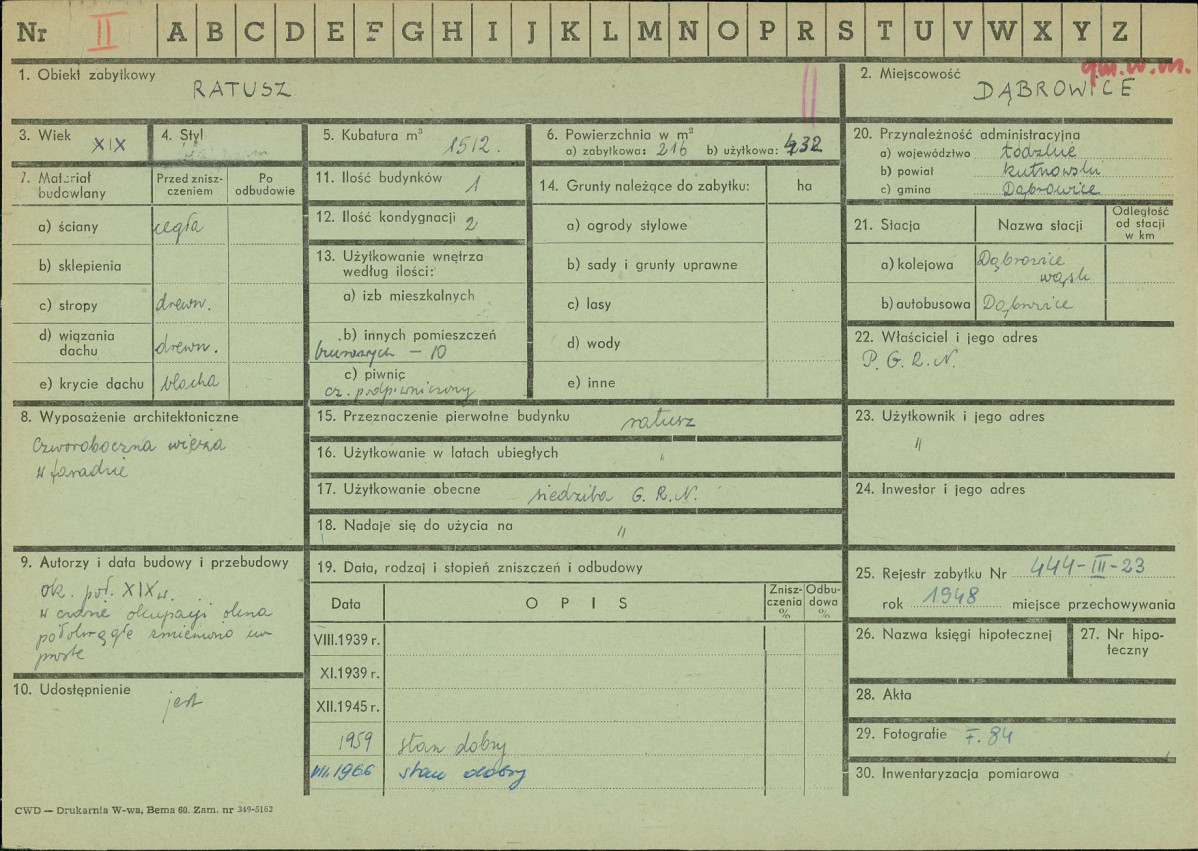 Nr II A B C D E F G H I J K L M N O P R S T U V W X Y Z
1. Obiekt zabytkowy
RATUSZ
2. Miejscowość gm.w.m.
DĄBROWICE
3. Wiek XIX
4. Styl
5. Kubatura m³ 1512.
6. Powierzchnia w m²
a) zabytkowa: 216 b) użytkowa: 432
20. Przynależność administracyjna
a) województwo łódzkie
b) powiat kutnowski
c) gmina Dąbrowice
7. Materiał budowlany
Przed zniszczeniem
Po odbudowie
a) ściany cegła
b) sklepienia
c) stropy drewn.
d) wiązania dachu drewn.
e) krycie dachu blacha
11. Ilość budynków 1
12. Ilość kondygnacji 2
13. Użytkowanie wnętrza
według ilości:
a) izb mieszkalnych
b) innych pomieszczeń
biurowych – 10
c) piwnic
cz. podpiwniczony
14. Grunty należące do zabytku: ha
a) ogrody stylowe
b) sady i grunty uprawne
c) lasy
d) wody
e) inne
21. Stacja
Nazwa stacji
Odległość od stacji w km
a) kolejowa Dąbrowice
wąsk
b) autobusowa Dąbrowice
22. Właściciel i jego adres
P. G. R. N.
8. Wyposażenie architektoniczne
Czworoboczna wieża
w fasadzie
15. Przeznaczenie pierwotne budynku ratusz
16. Użytkowanie w latach ubiegłych "
17. Użytkowanie obecne siedziba G. R. N.
18. Nadaje się do użycia na "
23. Użytkownik i jego adres
"
24. Inwestor i jego adres
9. Autorzy i data budowy i przebudowy
ok. poł. XIX w.
w czasie okupacji okna
półokrągłe zmieniono na
proste
10. Udostępnienie
jest
19. Data, rodzaj i stopień zniszczeń i odbudowy
Data
O P I S
Zniszczenia %
Odbudowa %
VIII.1939 r.
XI.1939 r.
XII.1945 r.
1959 stan dobry
VII.1966 stan dobry
25. Rejestr zabytku Nr 444-III-23
rok 1948 miejsce przechowywania
26. Nazwa księgi hipotecznej
27. Nr hipoteczny
28. Akta
29. Fotografie F. 84
30. Inwentaryzacja pomiarowa
CWD — Drukarnia W-wa, Bema 60. Zam. nr 349-5162